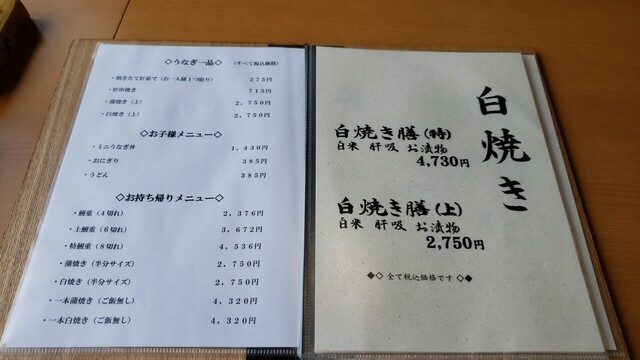 ◇うなぎ一品◇ (すべて税込価格)
・割きたて肝茹で(お一人様1つ限り) 275円
・肝串焼き 715円
・蒲焼き(上) 2,750円
・白焼き(上) 2,750円
◇お子様メニュー◇
・ミニうなぎ丼 1,430円
・おにぎり 385円
・うどん 385円
◇お持ち帰りメニュー◇
・鰻重(4切れ) 2,376円
・上鰻重(6切れ) 3,672円
・特鰻重(8切れ) 4,536円
・蒲焼き(半分サイズ) 2,750円
・白焼き(半分サイズ) 2,750円
・一本蒲焼き(ご飯無し) 4,320円
・一本白焼き(ご飯無し) 4,320円
白焼き
白焼き膳(特)
白米 肝吸 お漬物
4,730円
白焼き膳(上)
白米 肝吸 お漬物
2,750円
◆◇ 全て税込価格です ◇◆